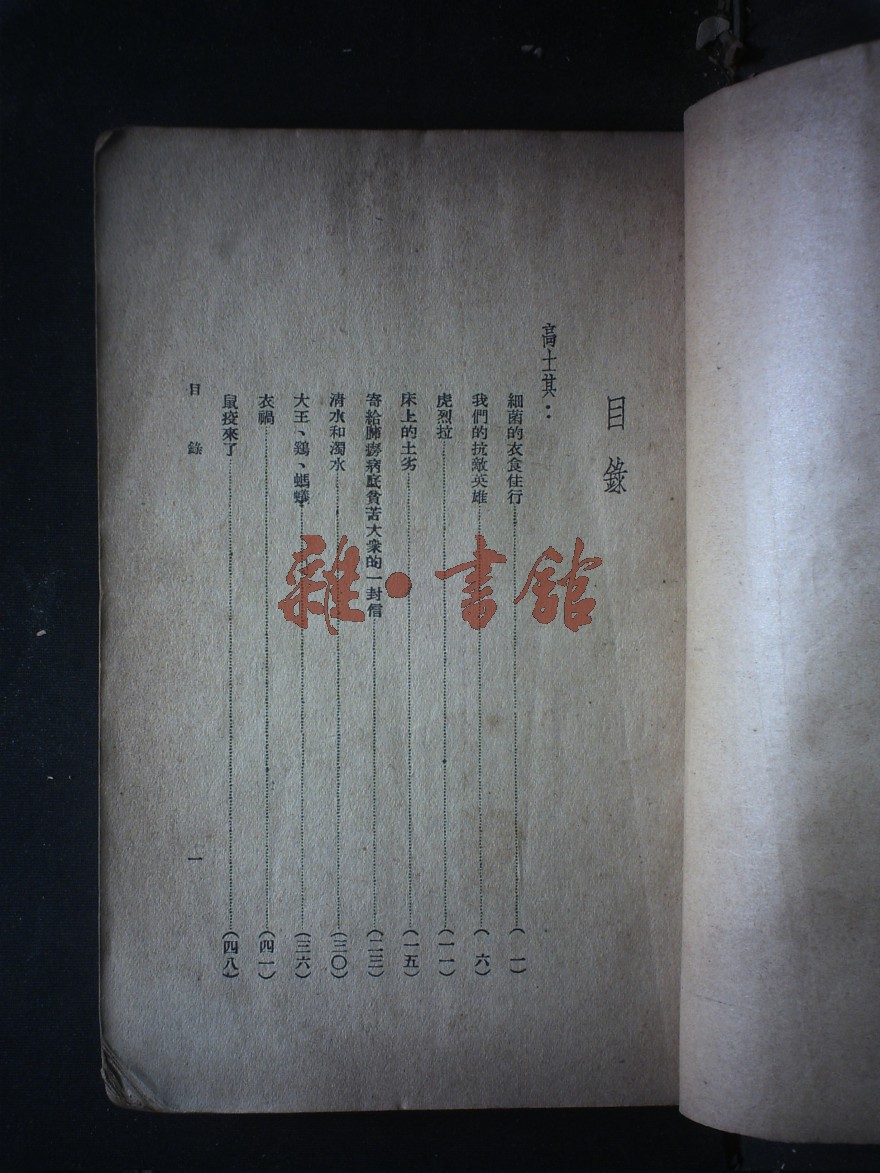 目錄
高士其：
細菌的衣食住行……（一）
我們的抗敵英雄……（六）
虎烈拉……（一一）
床上的土劣……（一五）
寄給肺癆病底貧苦大衆的一封信……（二三）
清水和濁水……（三〇）
大王、鷄、螞蟻……（三六）
衣禍……（四一）
鼠疫來了……（四八）
目錄
一
雜·書館